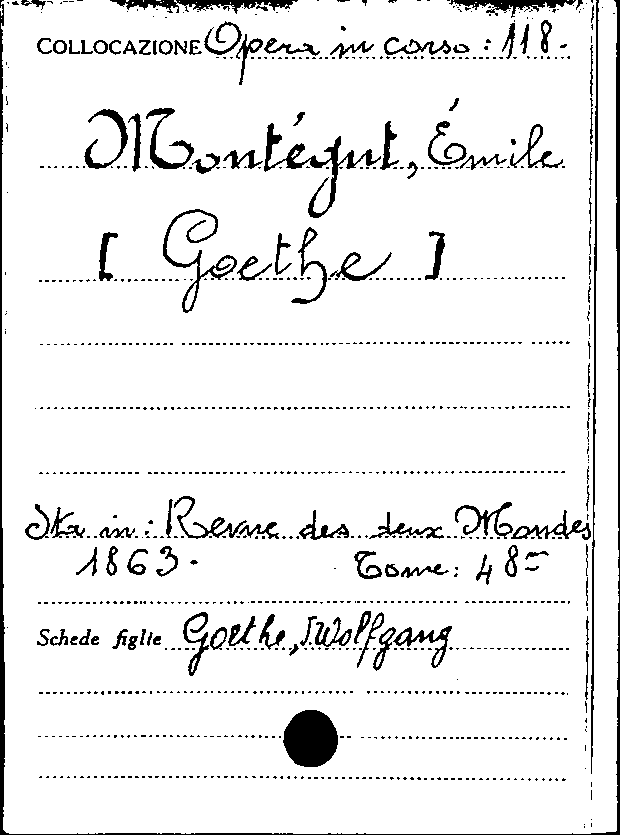 COLLOCAZIONE Opera in corso : 118.
Montégut, Émile
[ Goethe ]
Sta in : Revue des deux Mondes
1863. Tome: 48
Schede figlie Goethe, Wolfgang